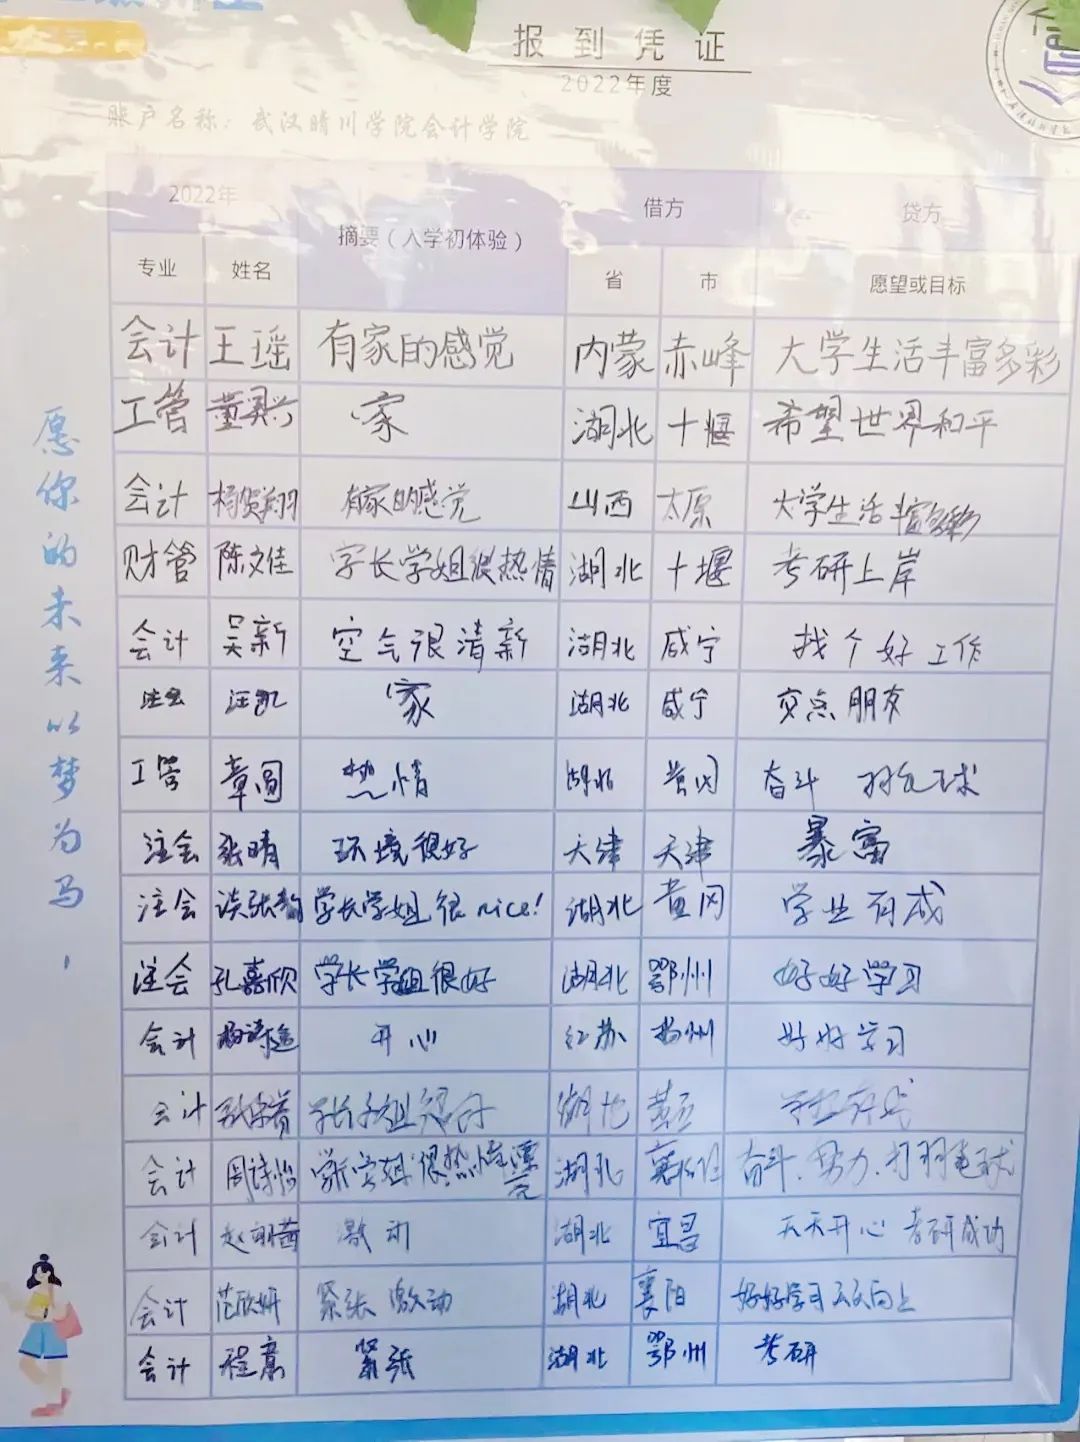 报到凭证
2022年度
账户名称：武汉晴川学院会计学院
2022年 摘要（入学初体验） 借方 贷方
专业 姓名 省 市 愿望或目标
会计 王瑶 有家的感觉 内蒙 赤峰 大学生活丰富多彩
工管 家 湖北 十堰 希望世界和平
会计 杨贺翔 有家的感觉 山西 太原 大学生活丰富多彩
财管 陈文佳 学长学姐很热情 湖北 十堰 考研上岸
会计 吴新 空气很清新 湖北 咸宁 找个好工作
注会 汪凯 家 湖北 咸宁 交点朋友
工管 章圆 热情 湖北 黄冈 奋斗 羽毛球
注会 张晴 环境很好 天津 天津 暴富
注会 谈张 学长学姐很nice! 湖北 黄冈 学业有成
注会 孔嘉欣 学长学姐很好 湖北 鄂州 好好学习
会计 开心 江苏 扬州 好好学习
会计 学长学姐很好 湖北 黄石 学业有成
会计 周诗怡 学长学姐很热情漂亮 湖北 奋斗、努力、打羽毛球
会计 赵 激动 湖北 宜昌 天天开心 考研成功
会计 范欣妍 紧张 激动 湖北 襄阳 好好学习 天天向上
会计 程 紧张 湖北 鄂州 考研
愿你的未来以梦为马，